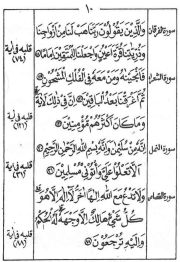 ١٠
سورة الفرقان
وَالَّذِينَ يَقُولُونَ رَبَّنَا هَبْ لَنَا مِنْ أَزْوَاجِنَا
وَذُرِّيَّاتِنَا قُرَّةَ أَعْيُنٍ وَاجْعَلْنَا لِلْمُتَّقِينَ إِمَامًا
قلبه فى آية
(٧٤)
سورة الشعراء
فَأَنْجَيْنَاهُ وَمَنْ مَعَهُ فِي الْفُلْكِ الْمَشْحُونِ
ثُمَّ أَغْرَقْنَا بَعْدُ الْبَاقِينَ إِنَّ فِي ذَلِكَ لَآيَةً
وَمَا كَانَ أَكْثَرُهُمْ مُؤْمِنِينَ
قلبه فى آية
سورة النمل
إِنَّهُ مِنْ سُلَيْمَانَ وَإِنَّهُ بِسْمِ اللَّهِ الرَّحْمَنِ الرَّحِيمِ
أَلَّا تَعْلُوا عَلَيَّ وَأْتُونِي مُسْلِمِينَ
قلبه فى آية
(٣١)
سورة القصص
وَلَا تَدْعُ مَعَ اللَّهِ إِلَهًا آخَرَ لَا إِلَهَ إِلَّا هُوَ
كُلُّ شَيْءٍ هَالِكٌ إِلَّا وَجْهَهُ لَهُ الْحُكْمُ
وَإِلَيْهِ تُرْجَعُونَ
قلبه فى آية
(٨٨)